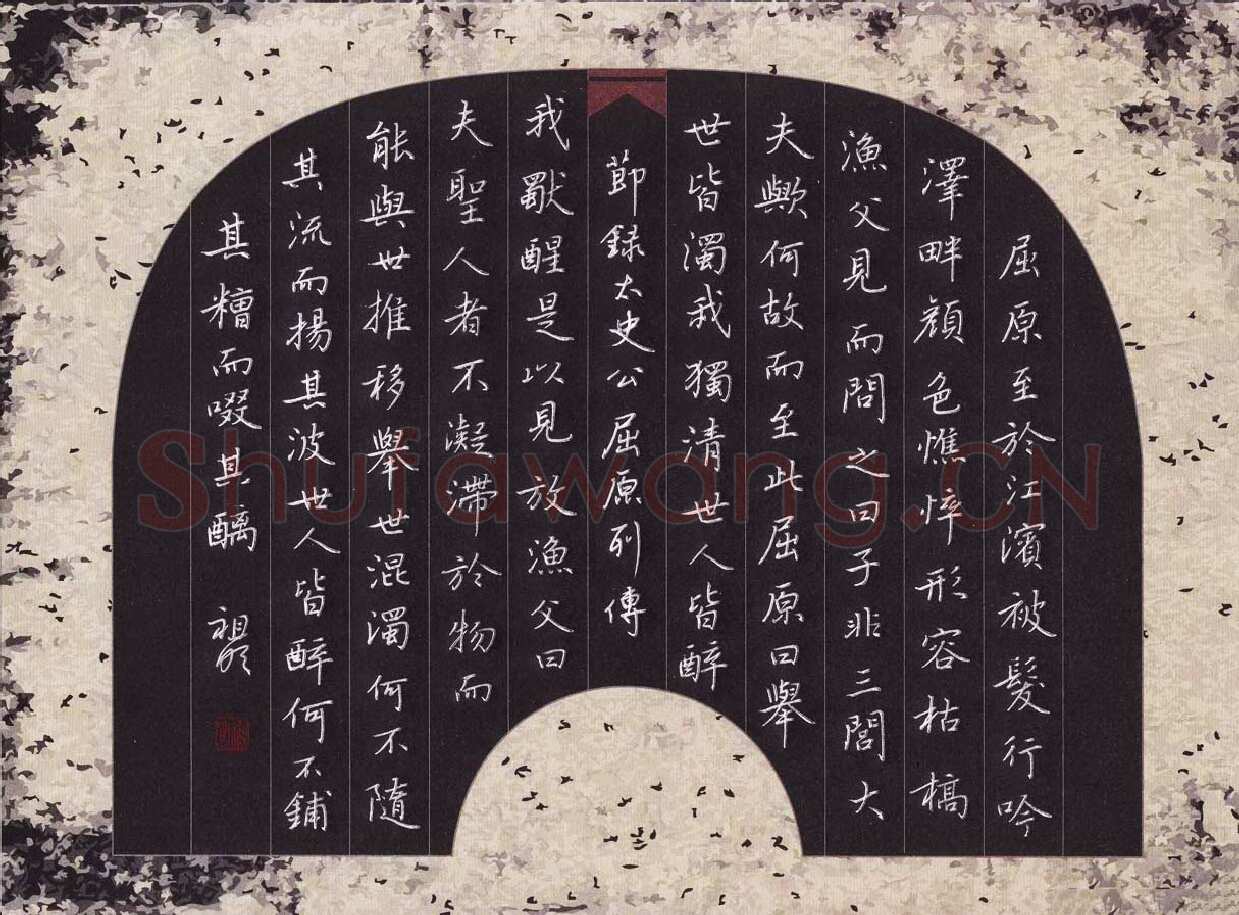 屈原至於江濱被髮行吟
澤畔顏色憔悴形容枯槁
漁父見而問之曰子非三閭大
夫歟何故而至此屈原曰舉
世皆濁我獨清世人皆醉
節錄太史公屈原列傳
我獨醒是以見放漁父曰
夫聖人者不凝滯於物而
能與世推移舉世混濁何不隨
其流而揚其波世人皆醉何不餔
其糟而啜其醨
Shufawang.CN